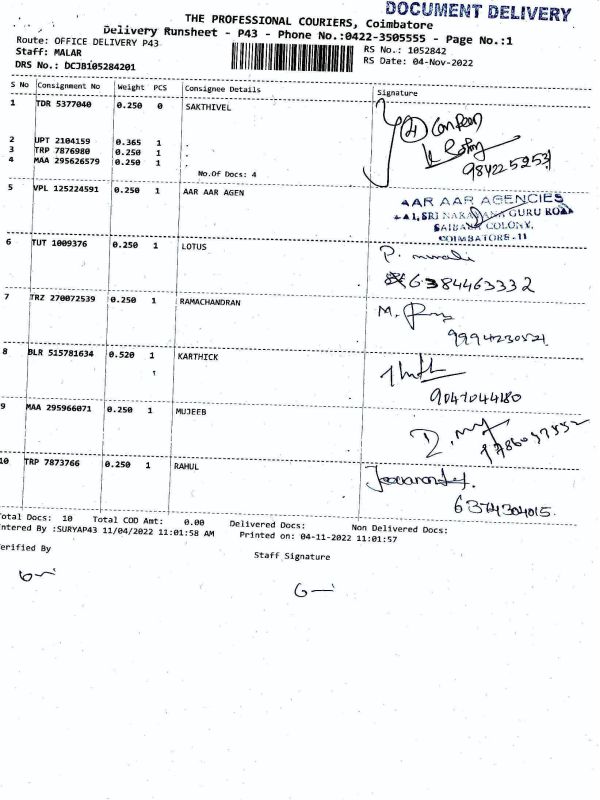 DOCUMENT DELIVERY
THE PROFESSIONAL COURIERS, Coimbatore
Delivery Runsheet - P43 - Phone No.:0422-3505555 - Page No.:1
Route: OFFICE DELIVERY P43
RS No.: 1052842
Staff: MALAR
RS Date: 04-Nov-2022
DRS No.: DCJB105284201
S No Consignment No Weight PCS Consignee Details Signature
1 TDR 5377040 0.250 0 SAKTHIVEL
2 UPT 2104159 0.365 1 .
3 TRP 7876980 0.250 1 .
4 MAA 295626579 0.250 1 .
No.Of Docs: 4
984225253
5 VPL 125224591 0.250 1 AAR AAR AGEN
AAR AAR AGENCIES
SRI NARAYANA GURU ROAD
SAIBABA COLONY,
COIMBATORE-11
6 TUT 1009376 0.250 1 LOTUS
P. murali
6384463332
7 TRZ 270072539 0.250 1 RAMACHANDRAN
M.
8 BLR 515781634 0.520 1 KARTHICK
1
9047044180
9 MAA 295966071 0.250 1 MUJEEB
10 TRP 7873766 0.250 1 RAHUL
6374304015.
Total Docs: 10 Total COD Amt: 0.00 Delivered Docs: Non Delivered Docs:
ntered By :SURYAP43 11/04/2022 11:01:58 AM Printed on: 04-11-2022 11:01:57
erified By
Staff Signature